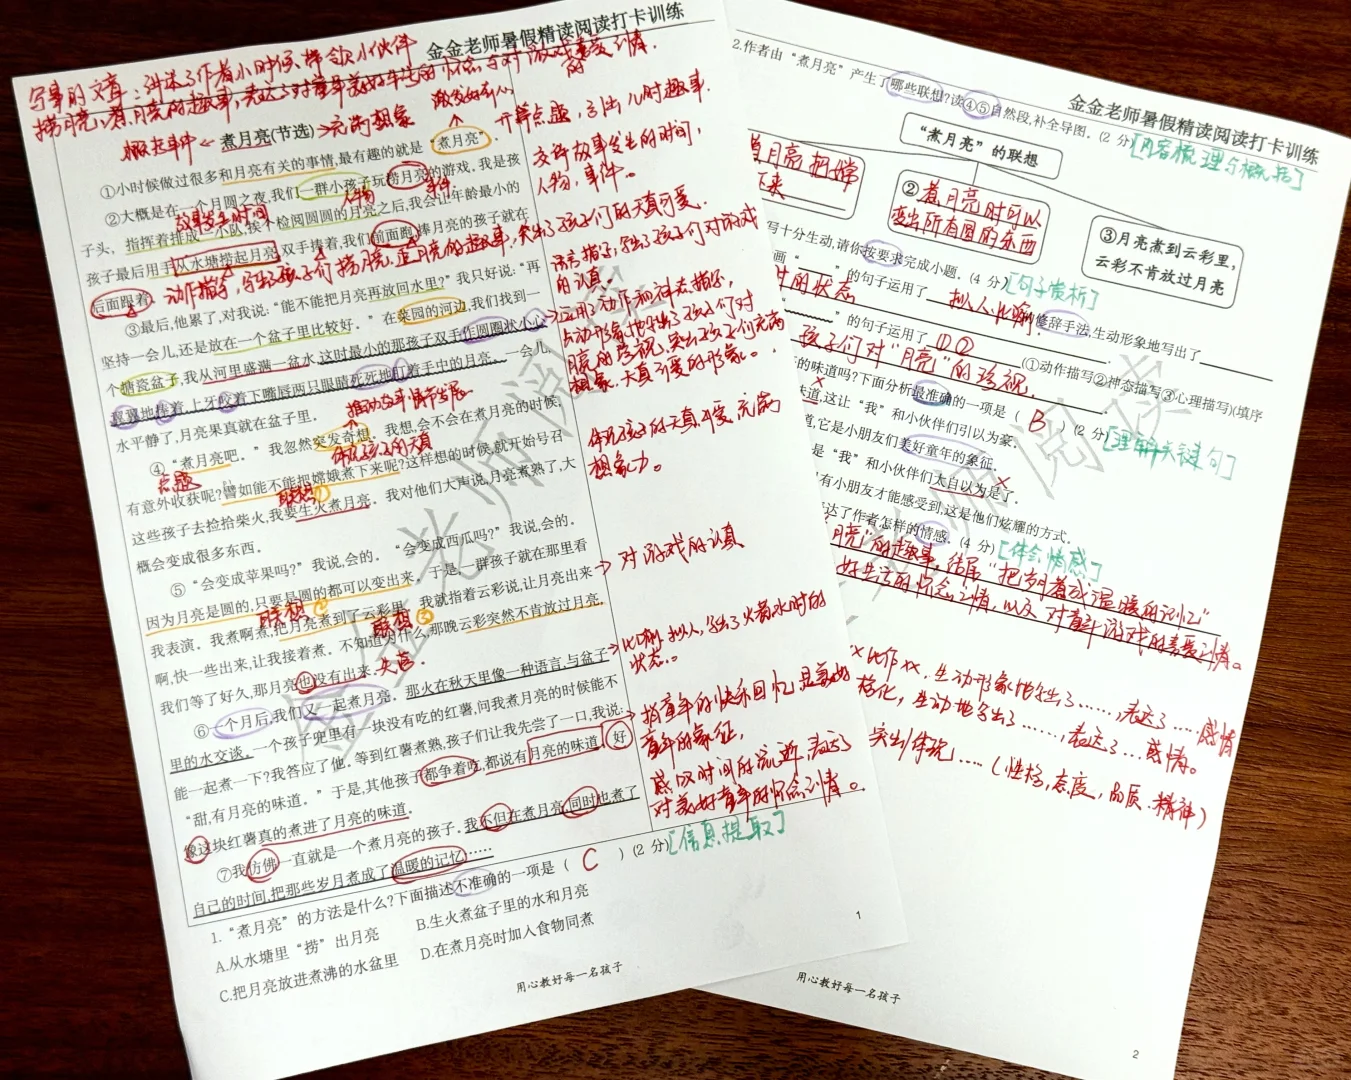 金金老师暑假精读阅读打卡训练
写事的文章：讲述了作者小时候、带领小伙伴
捞月亮、煮月亮的趣事，表达了对童年美好生活的怀念与对游戏的喜爱之情.
概括事件 ← 煮月亮(节选) → 充满想象
激发好奇心
开篇点题，引出儿时趣事.
①小时候做过很多和月亮有关的事情,最有趣的就是“煮月亮”.
②大概是在一个月圆之夜,我们一群小孩子玩捞月亮的游戏, 我是孩
人物
事件.
交待故事发生的时间,
人物,事件。
子头, 指挥着排成一小队,挨个检阅圆圆的月亮之后,我会让年龄最小的
故事发生时间
孩子最后用手从水塘捞起月亮,双手捧着,我们前面跑,捧月亮的孩子就在
后面跟着.
动作描写,写出了孩子们捞月亮、追月亮的趣事,突出了孩子们的天真可爱.
③最后,他累了,对我说:“能不能把月亮再放回水里?”我只好说:“再
语言描写,写出了孩子们对游戏
的认真.
坚持一会儿,还是放在一个盆子里比较好.”在菜园的河边,我们找到一
个搪瓷盆子,我从河里盛满一盆水,这时最小的那孩子双手作圆圈状小心
翼翼地捧着,上牙咬着下嘴唇两只眼睛死死地盯着手中的月亮.一会儿
水平静了,月亮果真就在盆子里.
运用了动作和神态描写,
生动形象地写出了孩子们对
月亮的珍视,突出了孩子们充满
想象、天真可爱的形象。
推动故事情节发展
④“煮月亮吧.”我忽然突发奇想.我想,会不会在煮月亮的时候,
点题
体现孩子的天真
有意外收获呢?譬如能不能把嫦娥煮下来呢?这样想的时候,就开始号召
联想①
这些孩子去捡拾柴火,我要生火煮月亮.我对他们大声说,月亮煮熟了,大
概会变成很多东西.
体现孩子的天真、可爱,充满
想象力。
⑤“会变成苹果吗?”我说,会的.“会变成西瓜吗?”我说,会的.
因为月亮是圆的,只要是圆的都可以变出来.于是一群孩子就在那里看
→ 对游戏的认真
联想②
我表演.我煮啊煮,把月亮煮到了云彩里.我就指着云彩说,让月亮出来
联想③
啊,快一些出来,让我接着煮.不知道为什么,那晚云彩突然不肯放过月亮,
我们等了好久,那月亮也没有出来.
失落.
⑥一个月后,我们又一起煮月亮.那火在秋天里像一种语言,与盆子
→ 比喻、拟人,写出了火煮水时的
状态。
里的水交谈.一个孩子兜里有一块没有吃的红薯,问我煮月亮的时候能不
能一起煮一下?我答应了他.等到红薯煮熟,孩子们让我先尝了一口,我说:
“甜,有月亮的味道.”于是,其他孩子都争着吃,都说有月亮的味道.好
→ 指童年的快乐回忆,是美好
童年的象征,
像这块红薯真的煮进了月亮的味道.
⑦我仿佛一直就是一个煮月亮的孩子.我不但在煮月亮,同时也煮了
自己的时间,把那些岁月煮成了温暖的记忆……
感叹时间的流逝,表达了
对美好童年的怀念之情。
1.“煮月亮”的方法是什么?下面描述不准确的一项是( C )(2 分)[信息提取]
A.从水塘里“捞”出月亮 B.生火煮盆子里的水和月亮
C.把月亮放进煮沸的水盆里 D.在煮月亮时加入食物同煮
1
用心教好每一名孩子
金金老师暑假精读阅读打卡训练
2.作者由“煮月亮”产生了哪些联想?读④⑤自然段,补全导图.(2 分)[内容梳理与概括]
“煮月亮”的联想
月亮把嫦
来
②煮月亮时可以
变出所有圆的东西
③月亮煮到云彩里,
云彩不肯放过月亮
写十分生动,请你按要求完成小题.(4 分)[句子赏析]
画“ ”的句子运用了 拟人、比喻 的修辞手法,生动形象地写出了
的状态
”的句子运用了 ①② ①动作描写②神态描写③心理描写)(填序
孩子们对“月亮”的珍视.
的味道吗?下面分析最准确的一项是( B )(2 分)[理解关键句]
味道,这让“我”和小伙伴们引以为豪. ×
道,它是小朋友们美好童年的象征.
是“我”和小伙伴们太自以为是了. ×
有小朋友才能感受到,这是他们炫耀的方式.
达了作者怎样的情感.(4 分)[体会情感]
月亮”的趣事,结尾“把岁月煮成了温暖的记忆”
好生活的怀念之情,以及对童年游戏的喜爱之情。
××比作××,生动形象地写出了……,表达了……感情
格化,生动地写出了……,表达了…感情。
突出/体现……(性格,态度,品质.精神)
用心教好每一名孩子
2
金金老师阅读